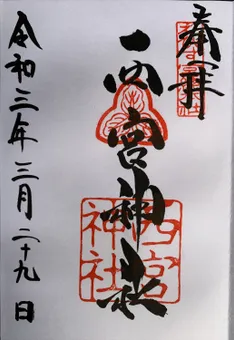 奉拝
西宮神社
西宮
神社
令和三年三月二十九日